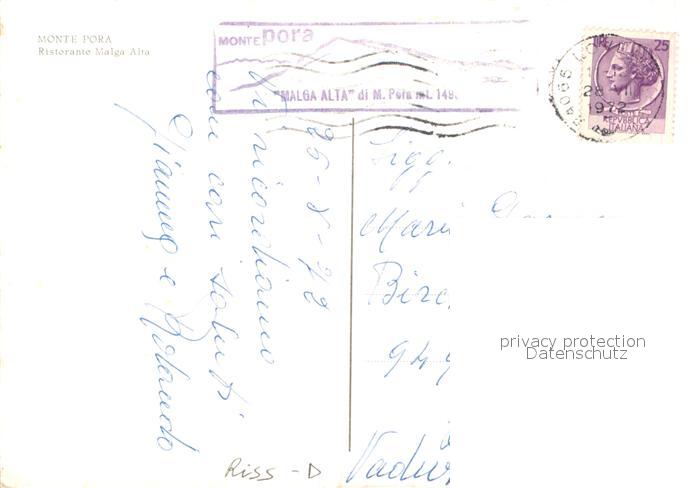 MONTE PORA
Ristorante Malga Alta
MONTE pora
"MALGA ALTA" di M. Pora mt. 149
25
1972
REPUBBLICA
ITALIANA
25-8-72
Vi ricordiamo
con cari saluti
Gianna e Rolando
Sigg.
Mari
Birc
949
Vaduz
privacy protection
Datenschutz
Riss - D